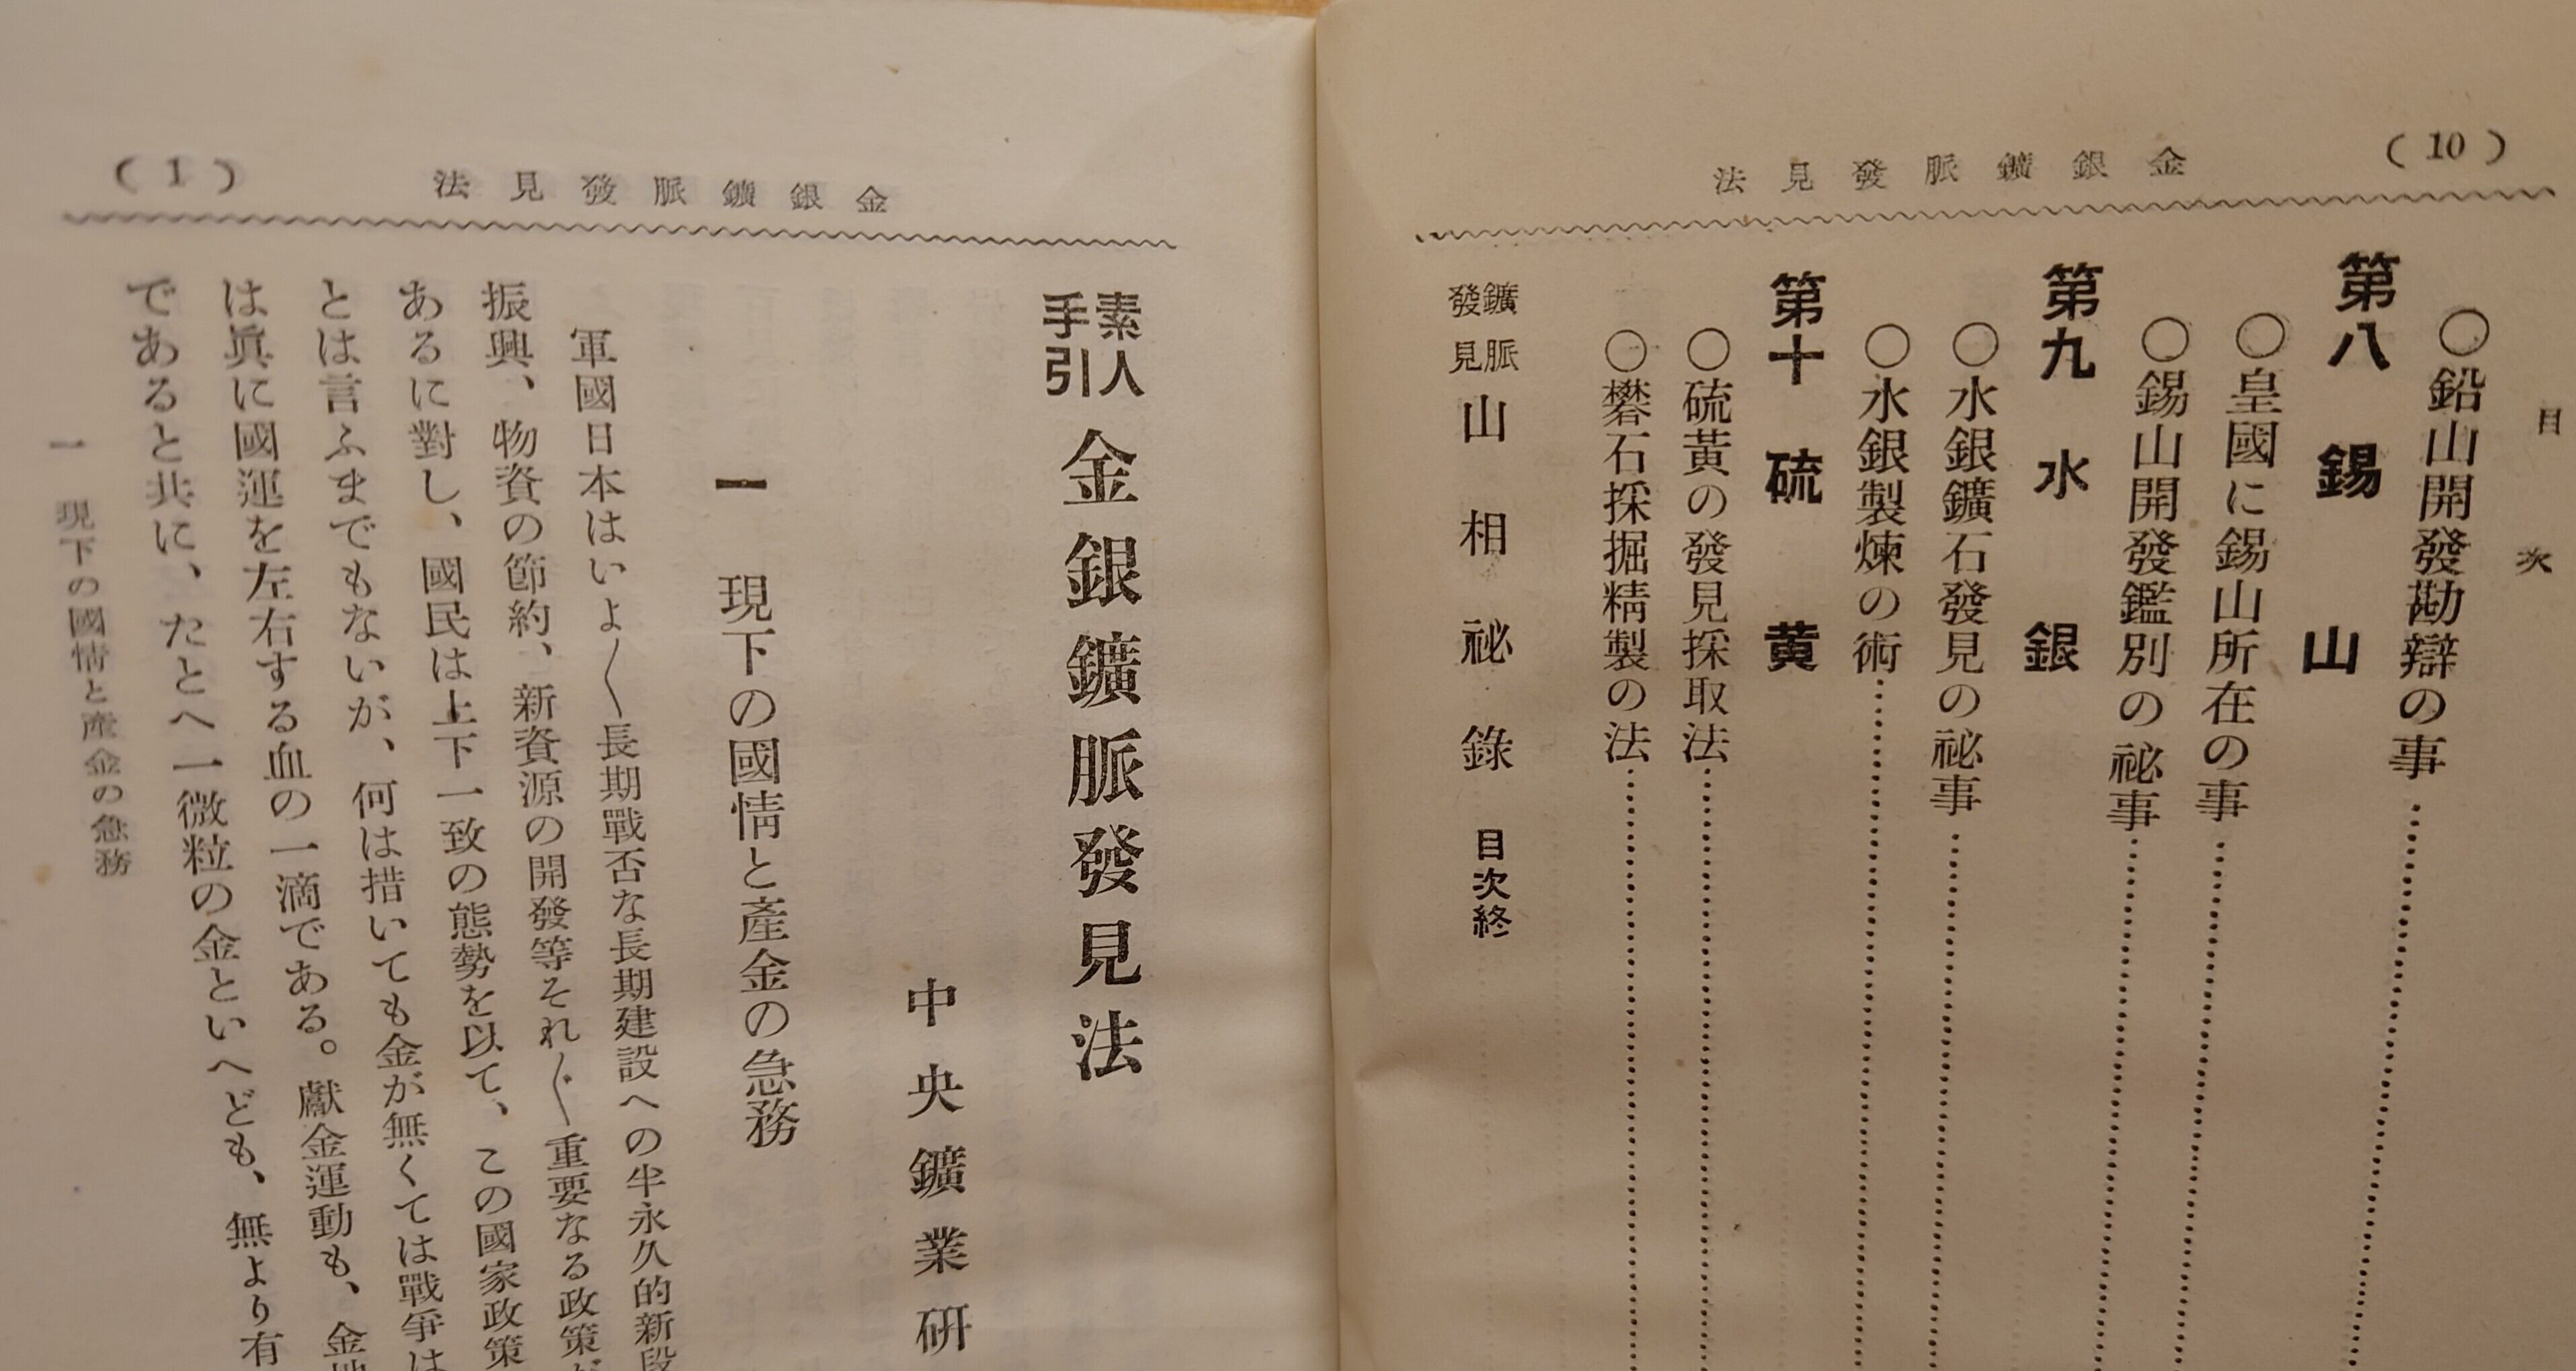 (10)
金銀鑛脈發見法
目次
○鉛山開發勘辯の事
第八 錫山
○皇國に錫山所在の事
○錫山開發鑑別の祕事
第九 水銀
○水銀鑛石發見の祕事
○水銀製煉の術
第十 硫黄
○硫黃の發見採取法
○礬石採掘精製の法
鑛脈發見山相祕錄 目次終
金銀鑛脈發見法
(1)
素人手引 金銀鑛脈發見法
中央鑛業研
一 現下の國情と產金の急務
軍國日本はいよ〳〵長期戰否な長期建設への半永久的新段
振興、物資の節約、新資源の開發等それ〴〵重要なる政策が
あるに對し、國民は上下一致の態勢を以て、この國家政策
とは言ふまでもないが、何は措いても金が無くては戰爭は
は眞に國運を左右する血の一滴である。獻金運動も、金地
であると共に、たとへ一微粒の金といへども、無より有
一 現下の國情と產金の急務